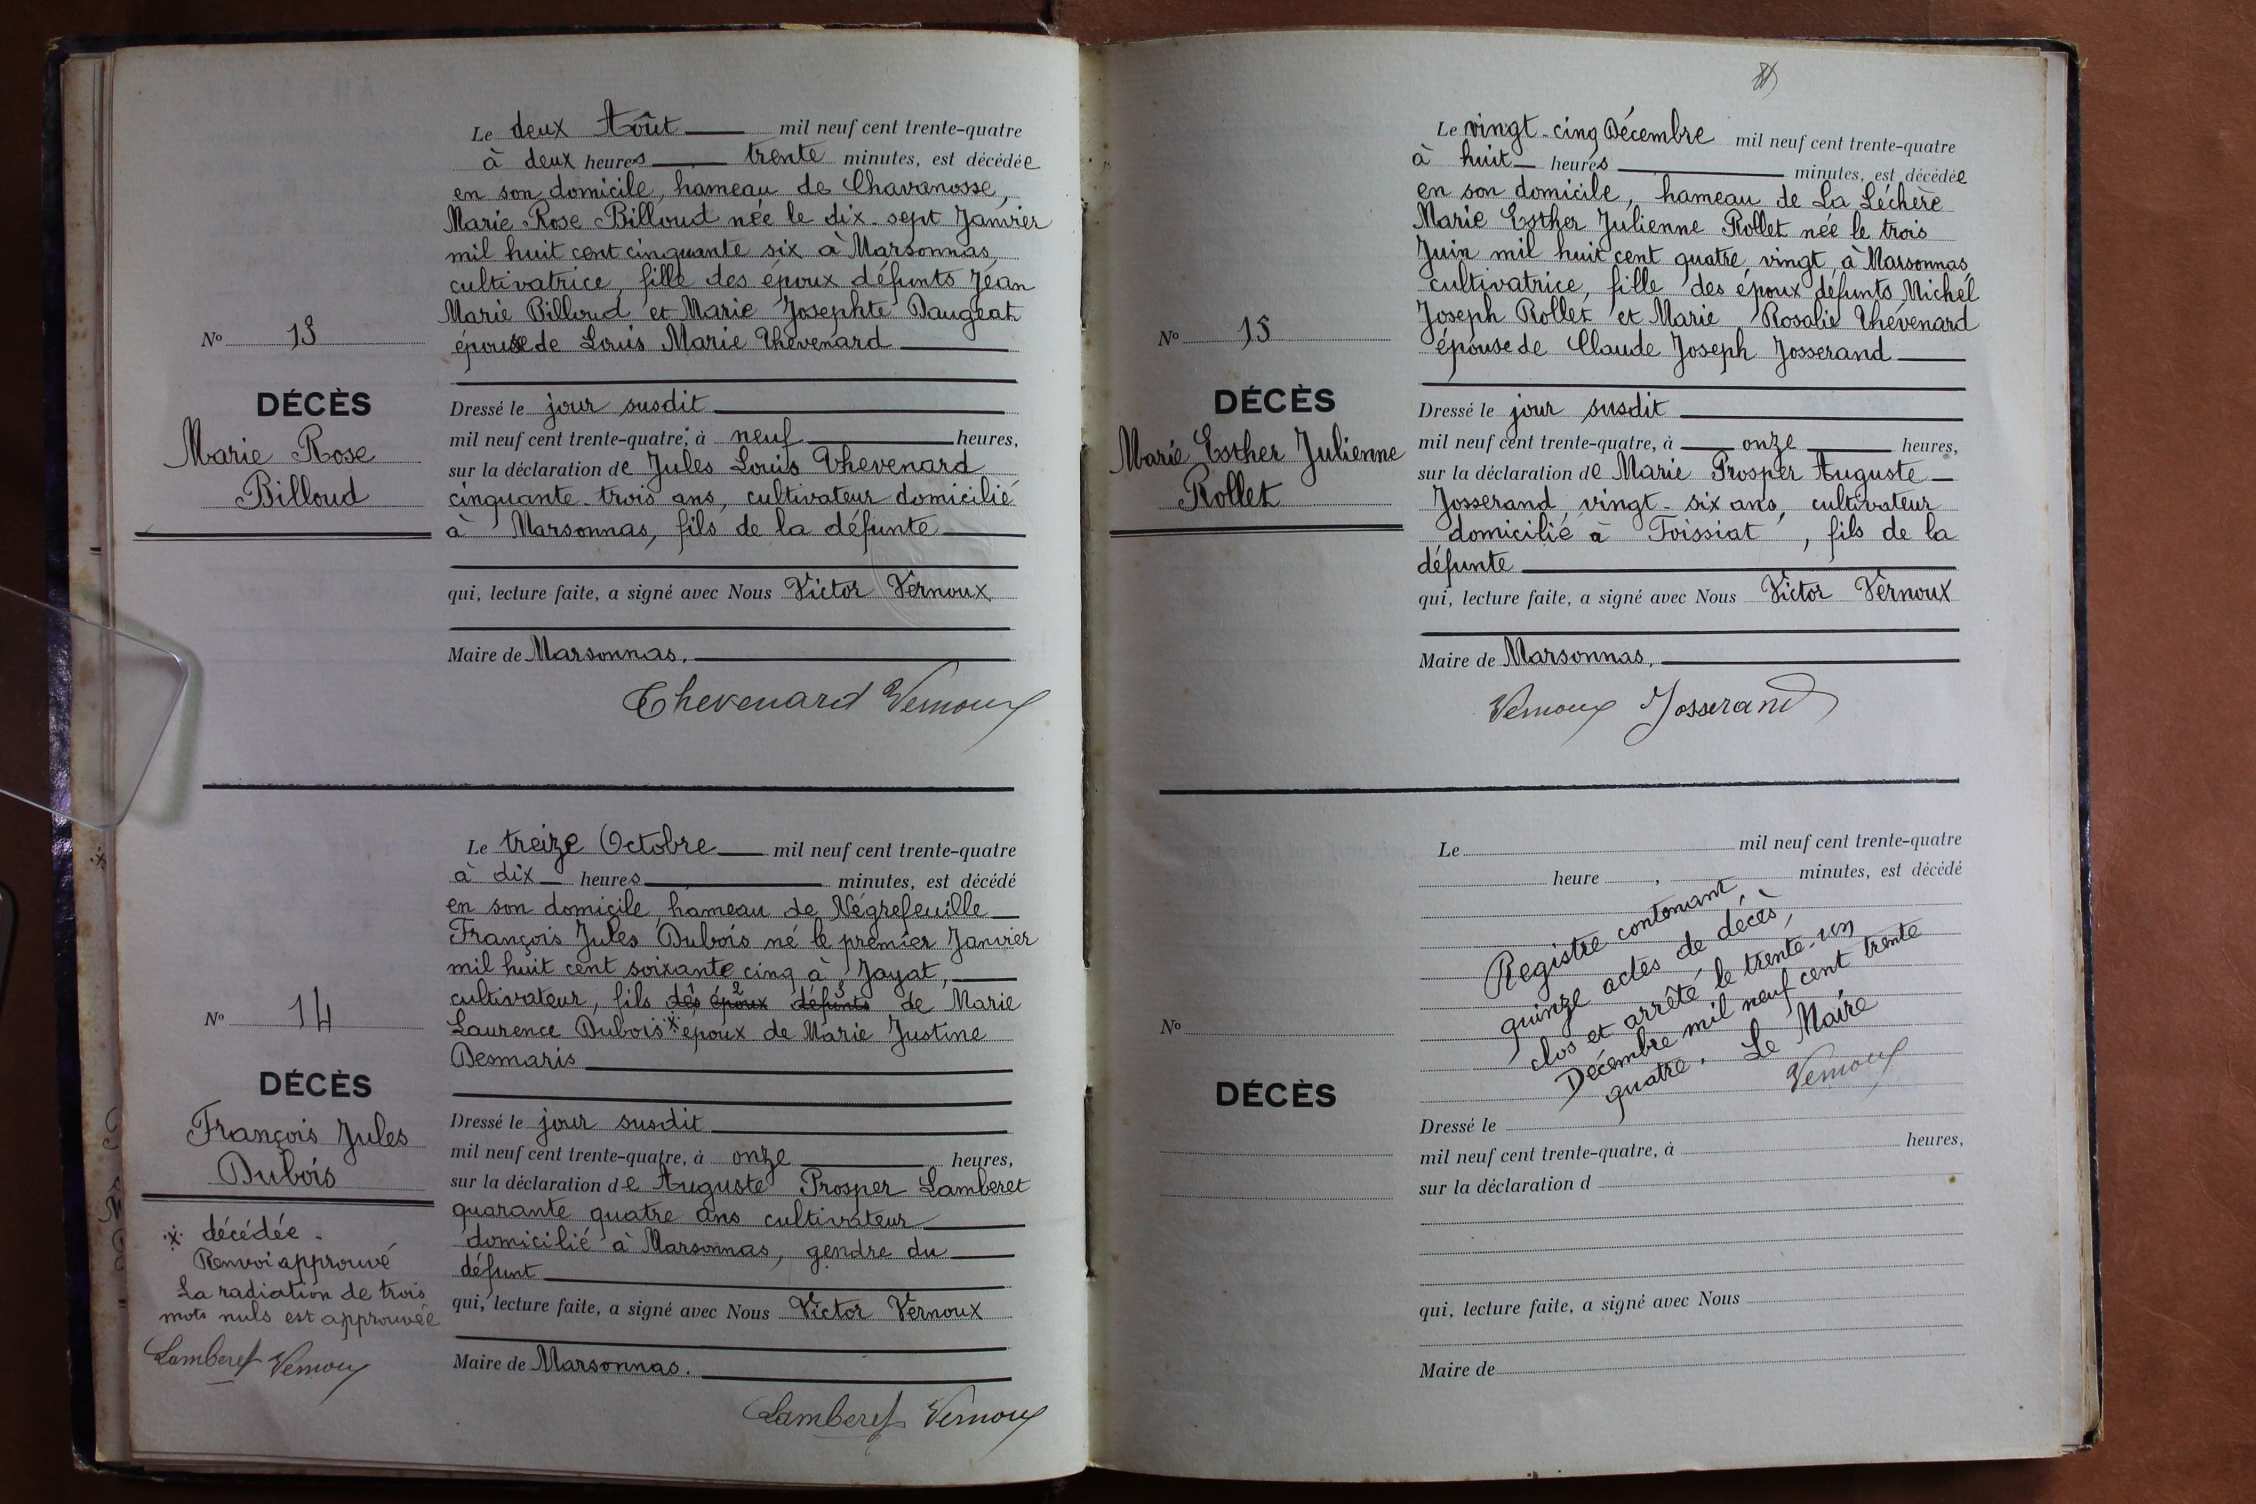 Le deux Août mil neuf cent trente-quatre
à deux heures trente minutes, est décédée
en son domicile, hameau de Chavanosse,
Marie Rose Billoud née le dix-sept Janvier
mil huit cent cinquante six à Marsonnas,
cultivatrice, fille des époux défunts Jean
Marie Billoud et Marie Josephte Daugeat
épouse de Louis Marie Thévenard
No 13
DÉCÈS
Marie Rose
Billoud
Dressé le jour susdit
mil neuf cent trente-quatre, à neuf heures,
sur la déclaration de Jules Louis Thevenard
cinquante-trois ans, cultivateur domicilié
à Marsonnas, fils de la défunte
qui, lecture faite, a signé avec Nous Victor Vernoux,
Maire de Marsonnas.
Thevenard Vernoux
Le treize Octobre mil neuf cent trente-quatre
à dix heures minutes, est décédé
en son domicile, hameau de Négrefeuille
François Jules Dubois né le premier Janvier
mil huit cent soixante cinq à Jayat,
cultivateur, fils des 1 époux 2 défunts 3 de Marie
Laurence Dubois x époux de Marie Justine
Desmaris
No 14
DÉCÈS
François Jules
Dubois
Dressé le jour susdit
mil neuf cent trente-quatre, à onze heures,
sur la déclaration de Auguste Prosper Lamberet
quarante quatre ans cultivateur
domicilié à Marsonnas, gendre du
défunt
qui, lecture faite, a signé avec Nous Victor Vernoux
Maire de Marsonnas.
x décédée.
Renvoi approuvé
La radiation de trois
mots nuls est approuvée
Lamberet Vernoux
Lamberet Vernoux
Le vingt-cinq Décembre mil neuf cent trente-quatre
à huit heures minutes, est décédée
en son domicile, hameau de La Léchère
Marie Esther Julienne Rollet née le trois
Juin mil huit cent quatre vingt, à Marsonnas,
cultivatrice, fille des époux défunts Michel
Joseph Rollet et Marie Rosalie Thévenard
épouse de Claude Joseph Josserand
No 15
DÉCÈS
Marie Esther Julienne
Rollet
Dressé le jour susdit
mil neuf cent trente-quatre, à onze heures,
sur la déclaration de Marie Prosper Auguste
Josserand, vingt-six ans, cultivateur
domicilié à Foissiat, fils de la
défunte
qui, lecture faite, a signé avec Nous Victor Vernoux
Maire de Marsonnas,
Vernoux Josserand
Le mil neuf cent trente-quatre
heure , minutes, est décédé
Registre contenant,
quinze actes de décès,
clos et arrêté le trente-un
Décembre mil neuf cent trente
quatre. Le Maire
Vernoux
No
DÉCÈS
Dressé le
mil neuf cent trente-quatre, à heures,
sur la déclaration d
qui, lecture faite, a signé avec Nous
Maire de